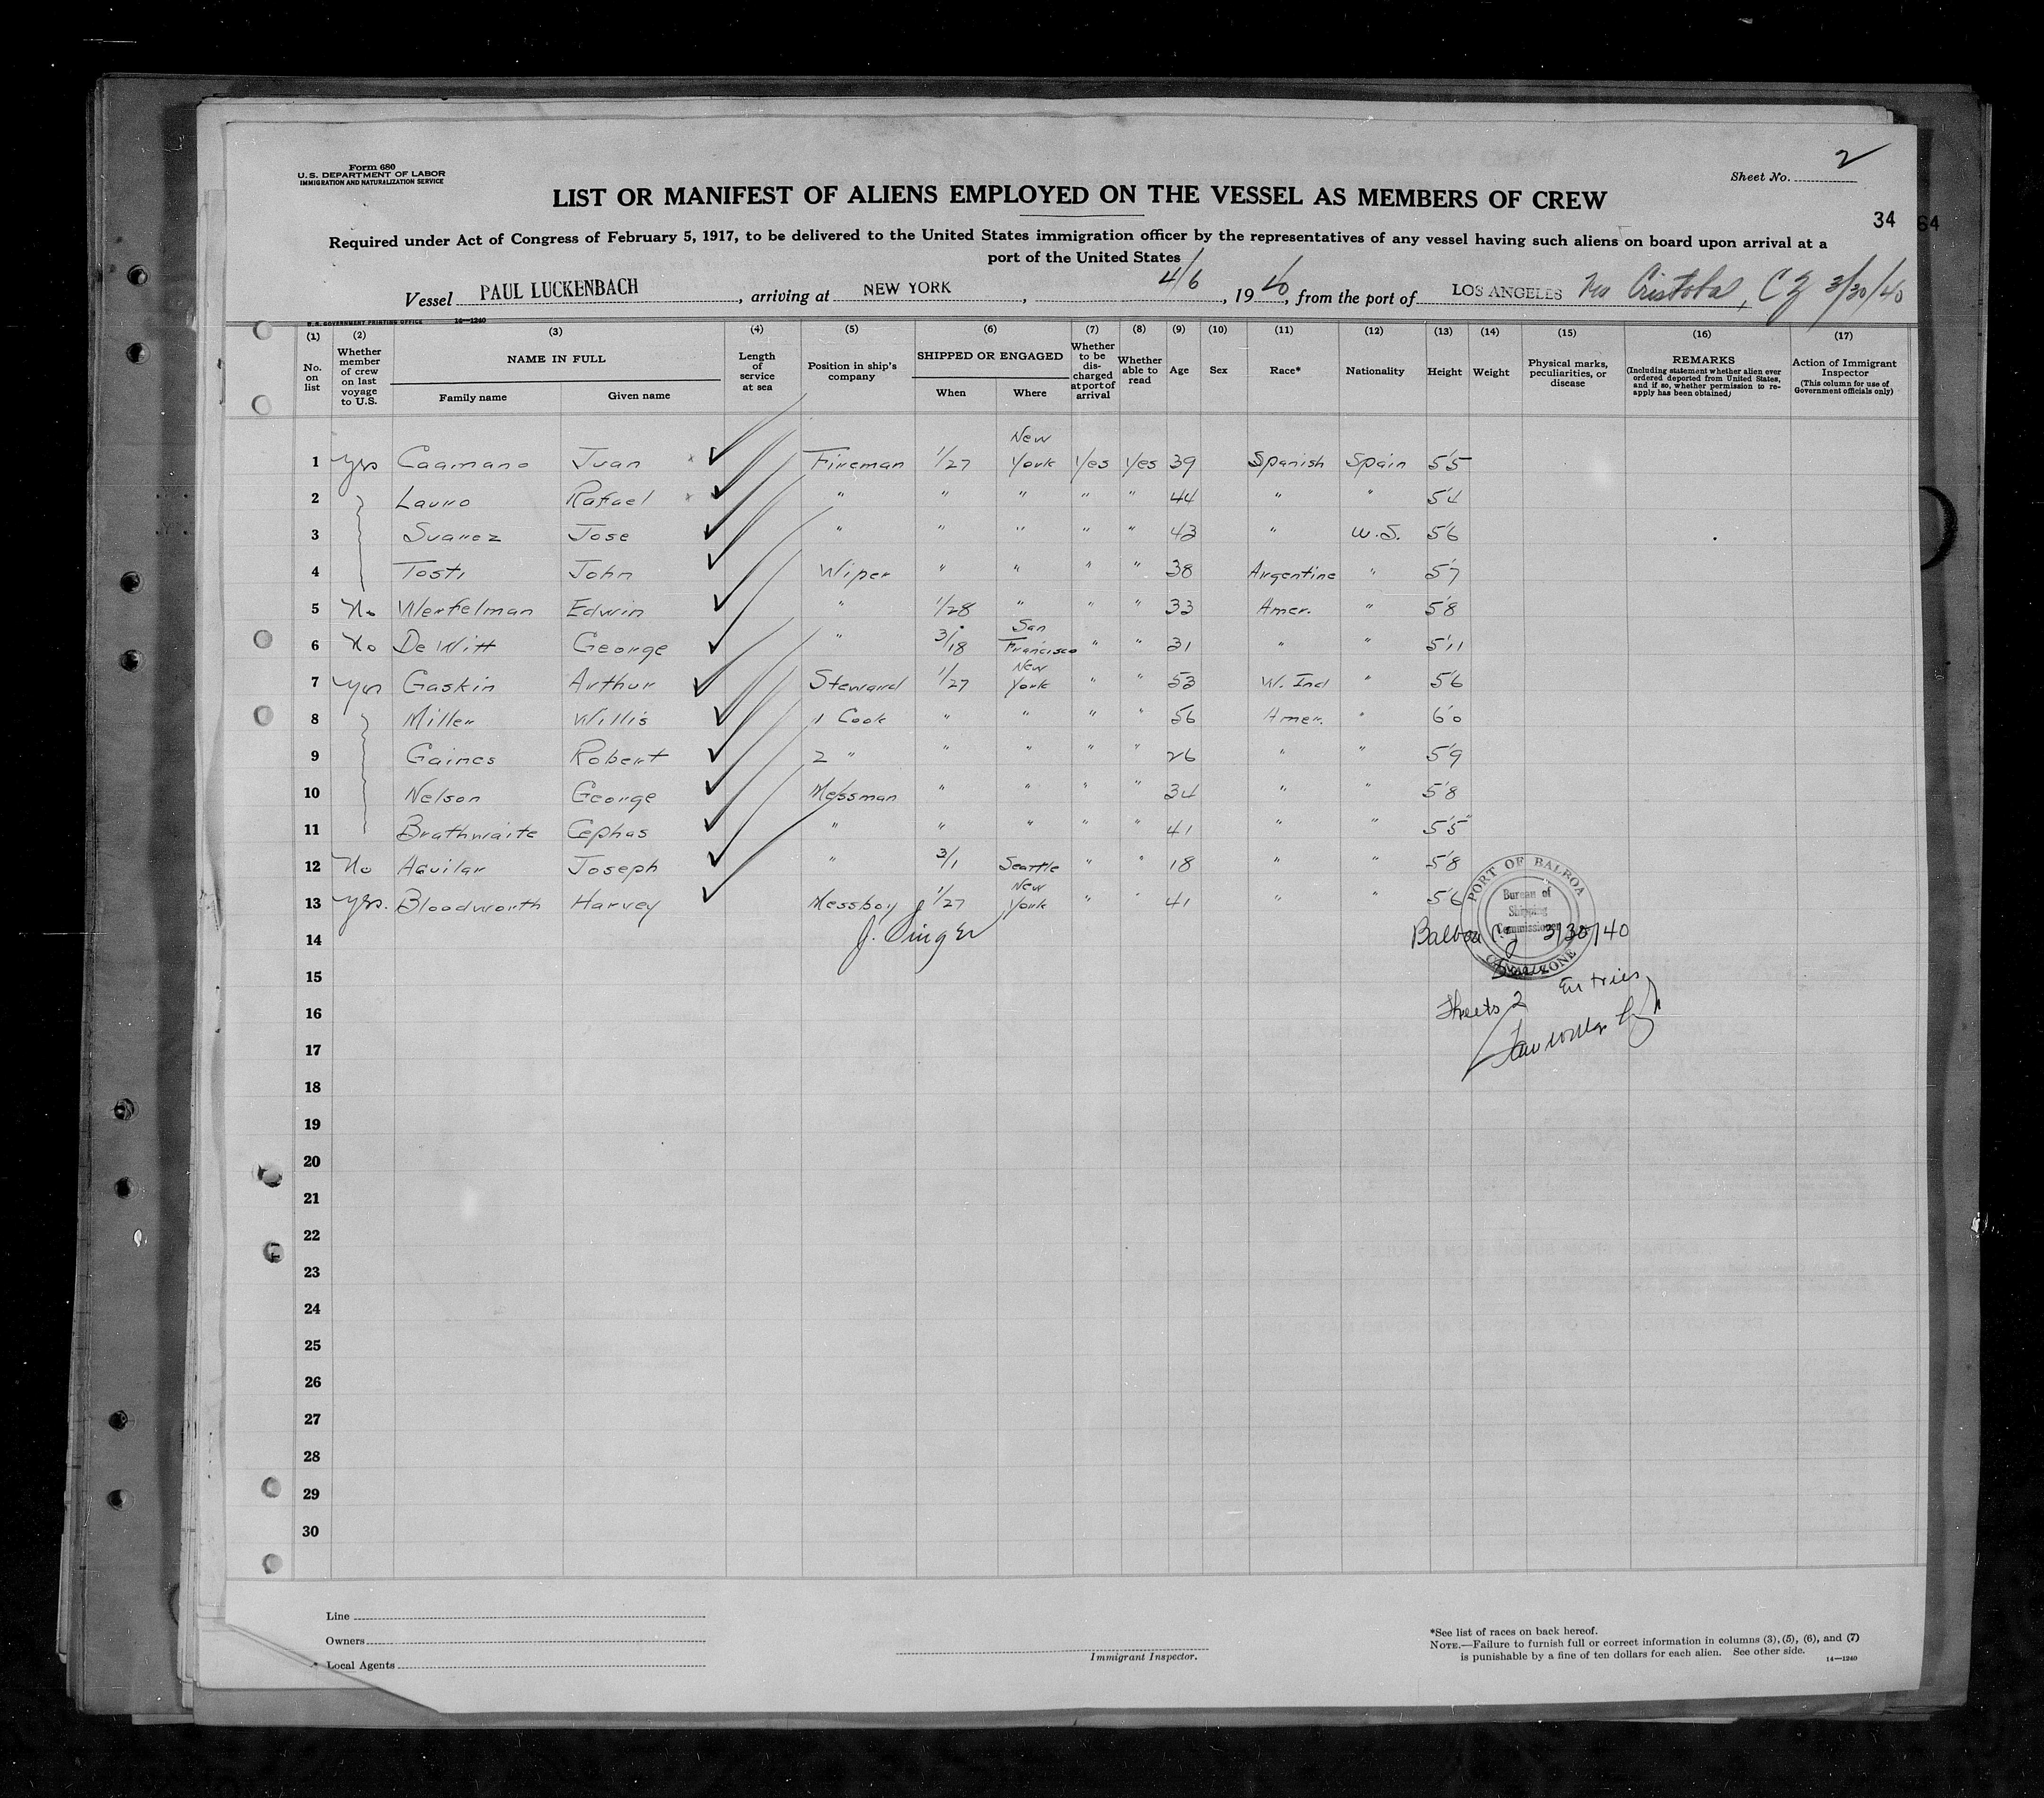 Form 680
U.S. DEPARTMENT OF LABOR
IMMIGRATION AND NATURALIZATION SERVICE
Sheet No. 2
LIST OR MANIFEST OF ALIENS EMPLOYED ON THE VESSEL AS MEMBERS OF CREW
34 64
Required under Act of Congress of February 5, 1917, to be delivered to the United States immigration officer by the representatives of any vessel having such aliens on board upon arrival at a
port of the United States
Vessel PAUL LUCKENBACH, arriving at NEW YORK, 4/6, 1940, from the port of LOS ANGELES Cristobal, CZ 3/30/40
U.S. GOVERNMENT PRINTING OFFICE 14—1240
(1) (2) (3) (4) (5) (6) (7) (8) (9) (10) (11) (12) (13) (14) (15) (16) (17)
No. on list
Whether member of crew on last voyage to U.S.
NAME IN FULL
Family name Given name
Length of service at sea
Position in ship's company
SHIPPED OR ENGAGED
When Where
Whether to be discharged at port of arrival
Whether able to read
Age
Sex
Race*
Nationality
Height
Weight
Physical marks, peculiarities, or disease
REMARKS
(Including statement whether alien ever ordered deported from United States, and if so, whether permission to reapply has been obtained)
Action of Immigrant Inspector
(This column for use of Government officials only)
1 Yes Caamano Juan Fireman 1/27 New York Yes Yes 39 Spanish Spain 5'5
2 Lauro Rafael " " " " " 44 " " 5'4
3 Suarez Jose " " " " " 43 " U.S. 5'6
4 Tosti John Wiper " " " " 38 Argentine " 5'7
5 No Werfelman Edwin " 1/28 " " " 33 Amer. " 5'8
6 No De Witt George " 3/18 San Francisco " " 31 " " 5'11
7 Yes Gaskin Arthur Steward 1/27 New York " " 53 W. Ind " 5'6
8 Miller Willis 1 Cook " " " " 56 Amer. " 6'0
9 Gaines Robert 2 " " " " " 26 " " 5'9
10 Nelson George Messman " " " " 34 " " 5'8
11 Brathwaite Cephas " " " " " 41 " " 5'5"
12 No Aguilar Joseph " 3/1 Seattle " " 18 " " 5'8
13 Yes. Bloodworth Harvey Messboy 1/27 New York " " 41 " " 5'6
14 J. Singer
PORT OF BALBOA
Bureau of
Shipping
Commissioner
CANAL ZONE
Balboa CZ 3/30/40
15
Entries
16 Sheets 2
17
18
19
20
21
22
23
24
25
26
27
28
29
30
Line
Owners
Local Agents
Immigrant Inspector.
*See list of races on back hereof.
NOTE.—Failure to furnish full or correct information in columns (3), (5), (6), and (7)
is punishable by a fine of ten dollars for each alien. See other side.
14—1240